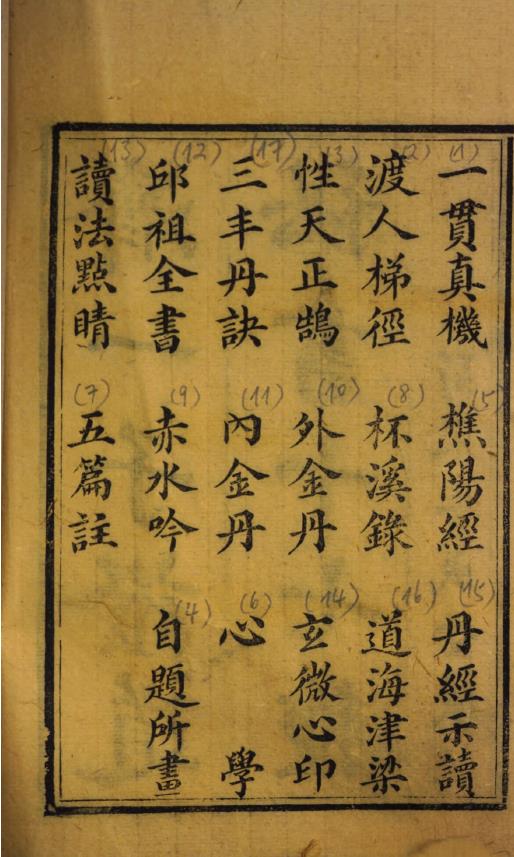 (1) 一貫真機 (5) 樵陽經 (15) 丹經示讀
(2) 渡人梯徑 (8) 杯溪錄 (16) 道海津梁
(3) 性天正鵠 (10) 外金丹 (14) 玄微心印
(17) 三丰丹訣 (11) 內金丹 (6) 心學
(12) 邱祖全書 (9) 赤水吟 (4) 自題所畫
(13) 讀法點睛 (7) 五篇註